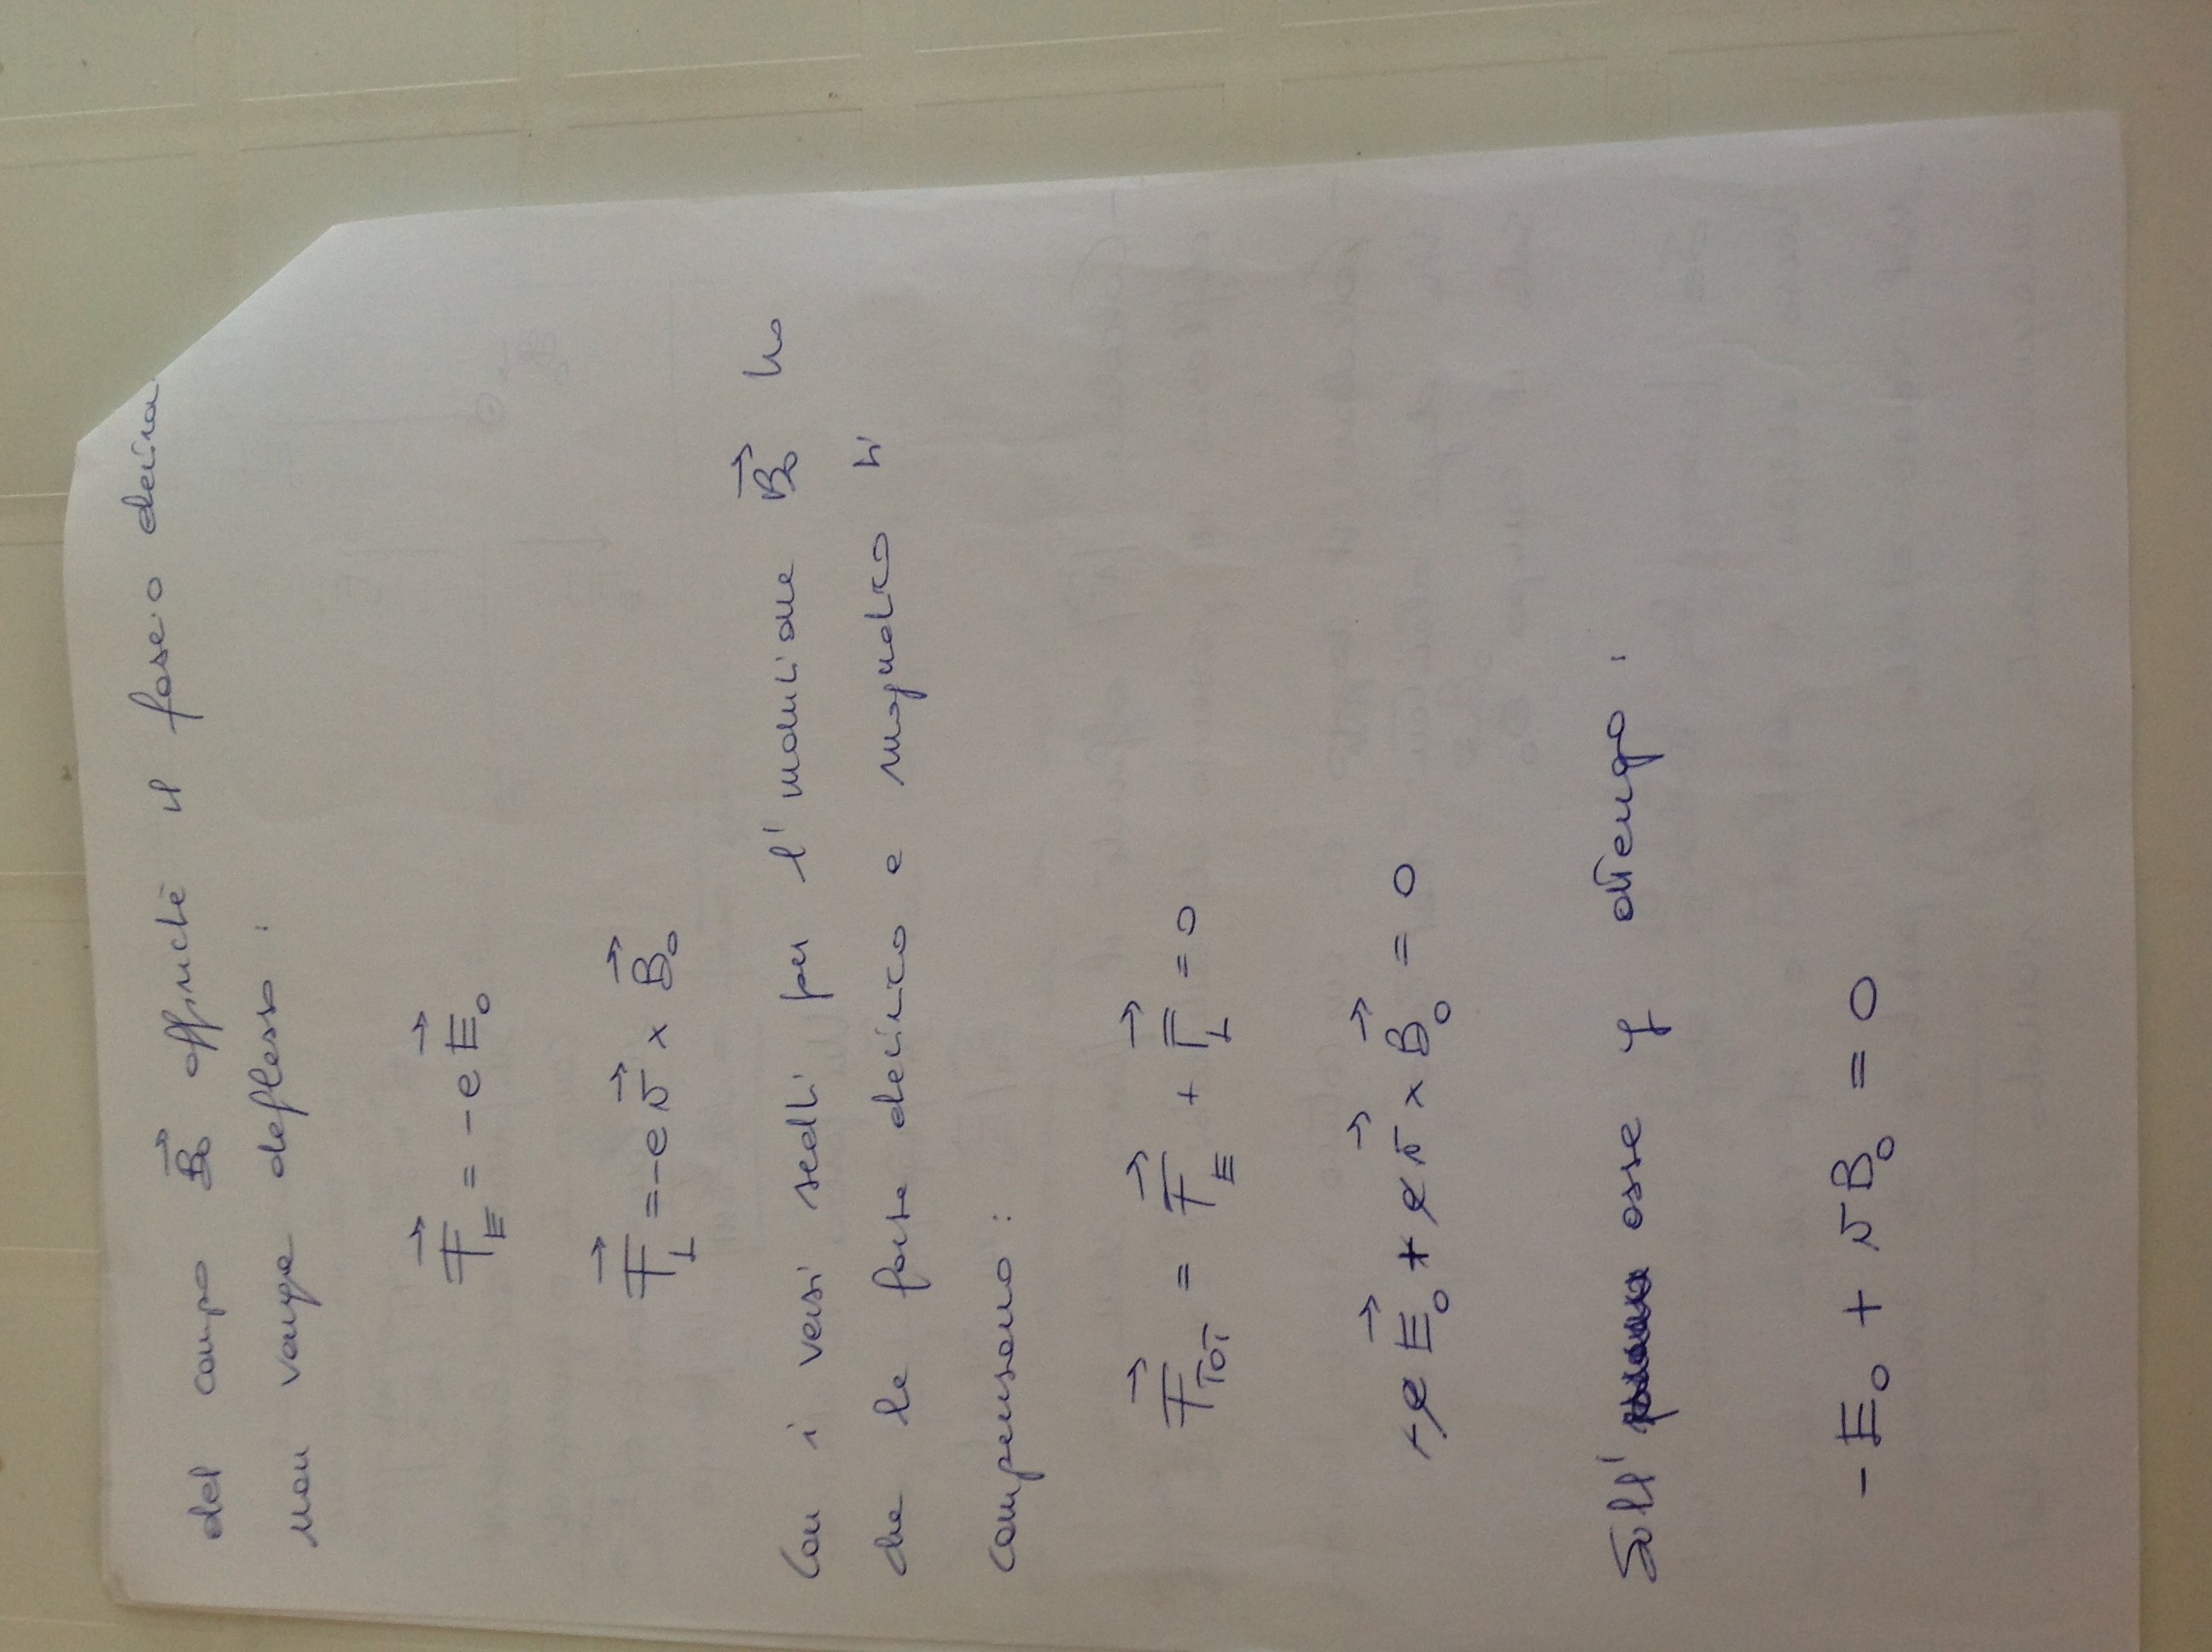 del campo B⃗₀ affinché il fascio
non venga deflesso :
F⃗_E = -e E⃗₀
F⃗_L = -e v⃗ × B⃗₀
Con i versi scelti per l'induzione B⃗₀ ho
che le forze elettrica e magnetica si
compensano :
F⃗_TOT = F⃗_E + F⃗_L = 0
-e E⃗₀ + e v⃗ × B⃗₀ = 0
Sull' asse y ottengo :
- E₀ + v B₀ = 0